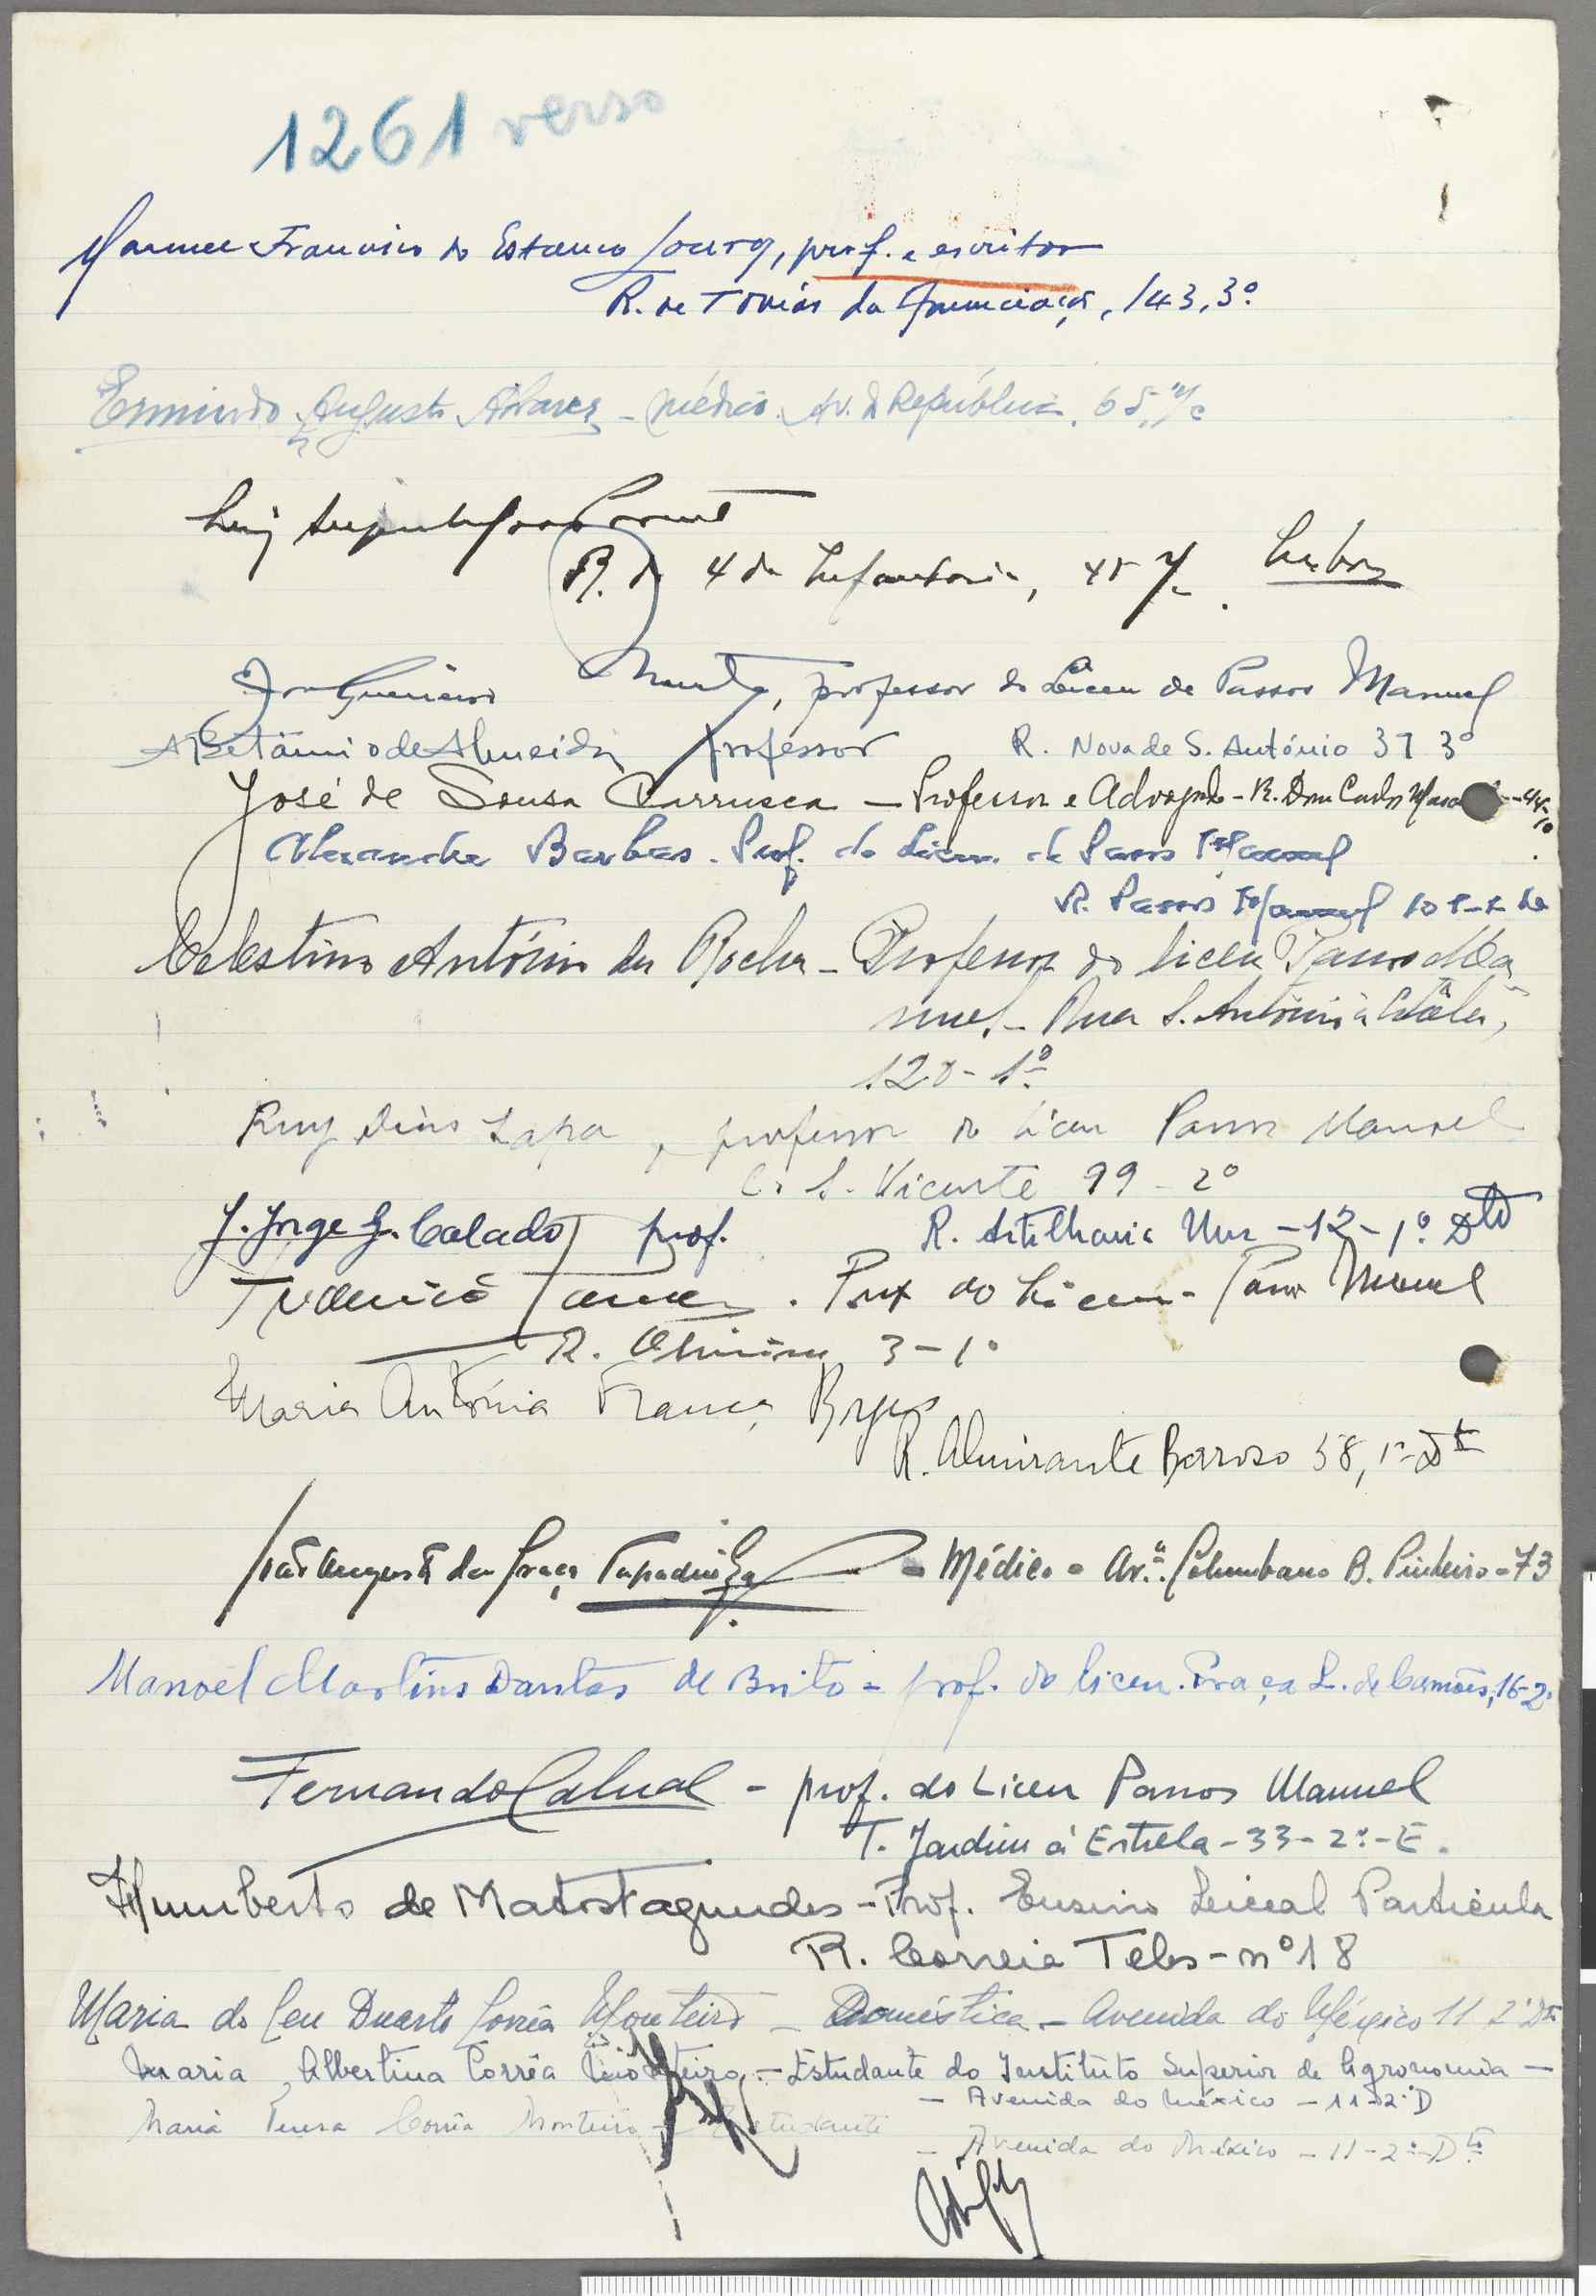 1261 verso
Manuel Francisco do Estanco Louro, prof. e escritor
R. de Tomás da Anunciação, 143, 3º
Ermindo Augusto Alvarez - médico. Av. da República, 65, r/c
Luiz
R. de 4 de Infantaria, 45 r/c. Lisboa
Guerreiro Murta, professor do Liceu de Passos Manuel
A Betâmio de Almeida professor R. Nova de S. António 37 3º
José de Sousa Carrusca - Professor e Advogado - R. Dom Carlos
Alexandre Barbas. Prof. do Liceu de Passos Manuel
R. Passos Manuel
Celestino António da Rocha - Professor do liceu Passos Ma-
nuel - Rua S. António à Estrela,
120 - 1º
Ruy Dinis Lapa, professor do Liceu Passos Manuel
S. Vicente 99 - 2º
J. Jorge G. Calado prof. R. Artilharia Um - 12 - 1º Dtº
Prof do Liceu - Passos Manuel
R. 3 - 1º
Maria Antónia França Borges
R. Almirante Barroso 58, 1º Dt
João Augusto da Graça Tapadinhas - Médico - Av.ª Columbano B. Pinheiro - 73
Manoel Martins Dantas de Brito - prof. do liceu. Praça L. de Camões, 16-2º
Fernando Cabral - prof. do Liceu Passos Manuel
T. Jardim à Estrela - 33 - 2º - E.
Humberto de Matos Fagundes - Prof. Ensino Liceal Particular
R. Correia Teles - nº 18
Maria do Ceu Duarte Corrêa Monteiro - Doméstica - Avenida do México 11 2º Dtº
Maria Albertina Corrêa Monteiro - Estudante do Instituto Superior de Agronomia -
- Avenida do México - 11 - 2º D
Maria Teresa Corrêa Monteiro - Estudante
- Avenida do México - 11 - 2º - Dtº